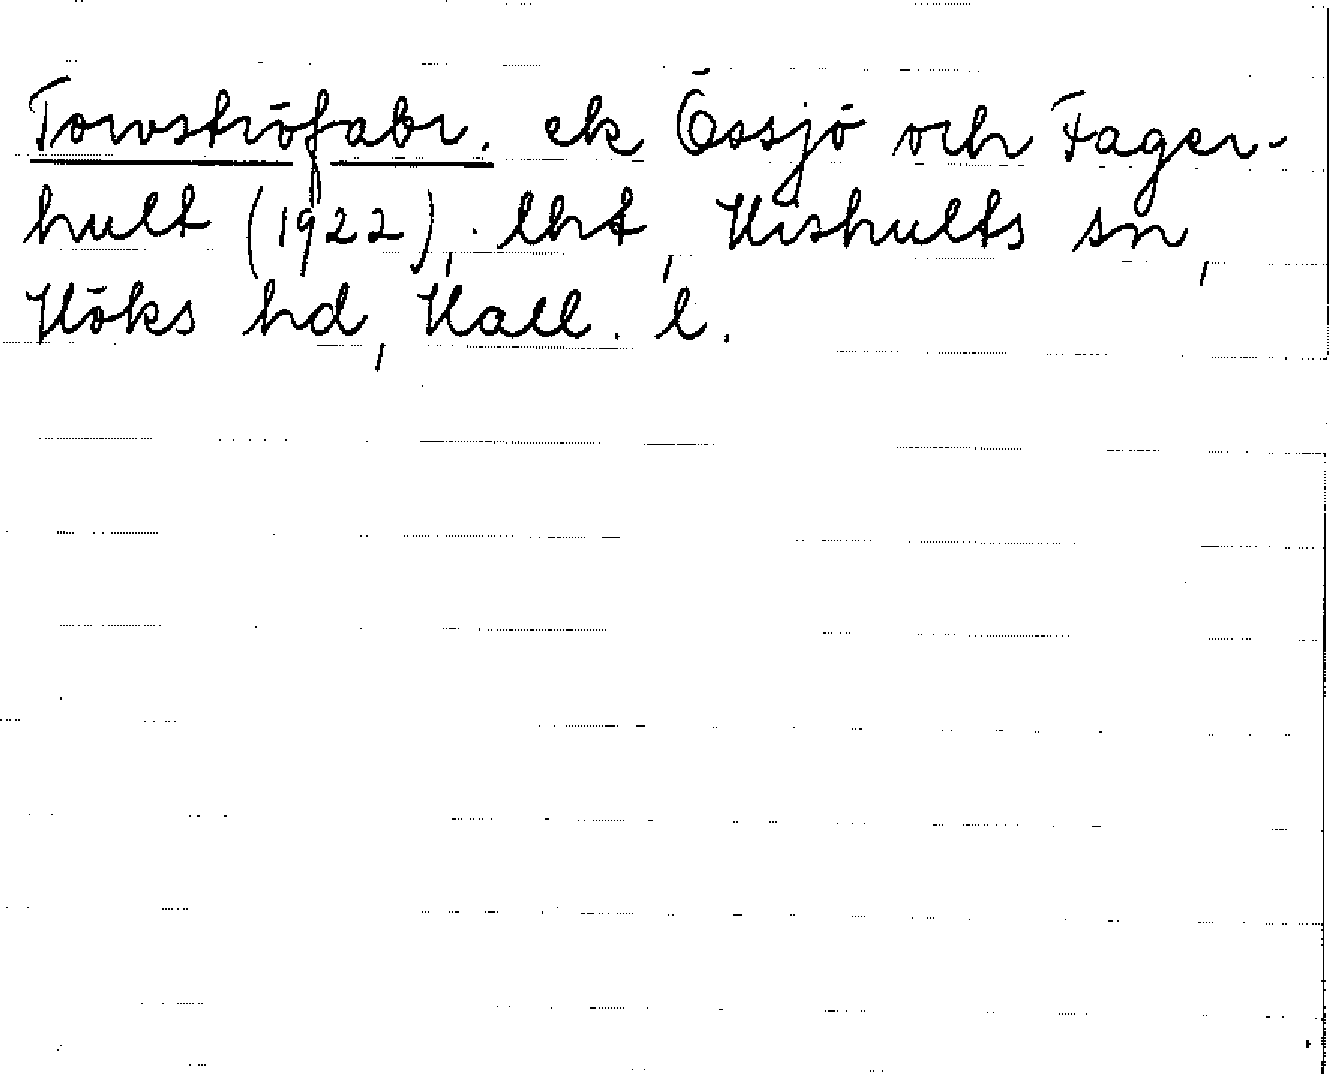 Torvströfabr. ek Össjö och Fager-
hult (1922), lht, Hishults sn,
Höks hd, Hall. l.